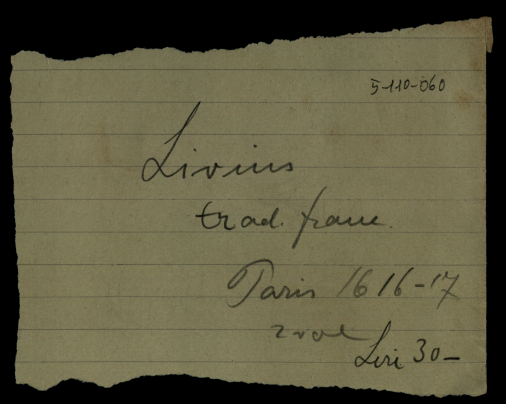 5-110-060
Livius
trad. franc.
Paris 1616-17
2 vol
Leri 30-